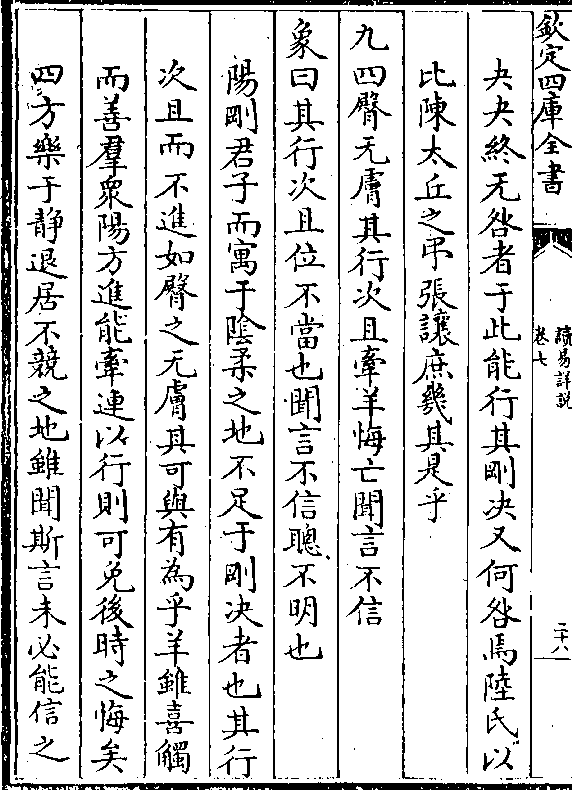 欽定四庫全書
讀易詳說
卷七
二十八
夬夬終无咎者于此能行其剛決又何咎焉陸氏以
比陳太丘之弔張讓庶幾其是乎
九四臀无膚其行次且牽羊悔亡聞言不信
象曰其行次且位不當也聞言不信聰不明也
陽剛君子而寓于陰柔之地不足于剛決者也其行
次且而不進如臀之无膚其可與有為乎羊雖喜觸
而善羣衆陽方進能牽連以行則可免後時之悔矣
四方樂于静退居不競之地雖聞斯言未必能信之